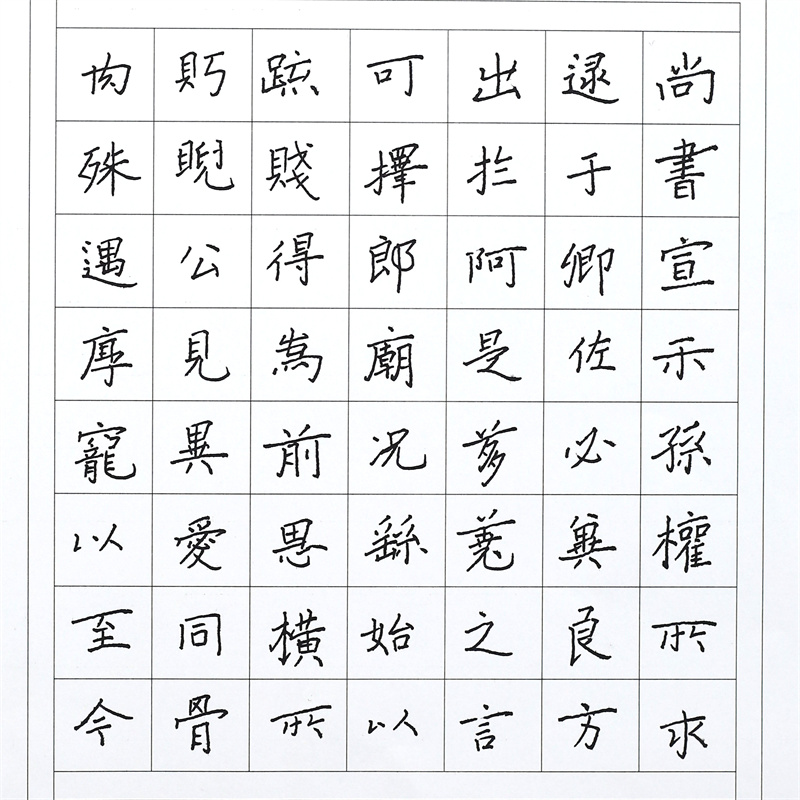 尚書宣示孫權所求
逮于卿佐必冀良方
出於阿是芻蕘之言
可擇郎廟况繇始以
疏賤得為前恩橫所
眄睨公見異愛同骨
肉殊遇厚寵以至今